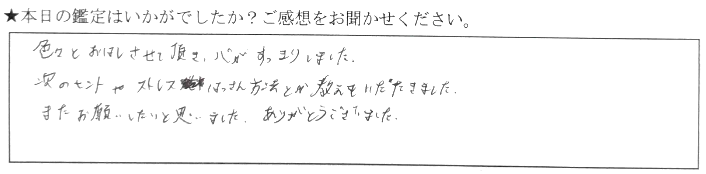 ★本日の鑑定はいかがでしたか？ご感想をお聞かせください。
色々とおはしさせて頂き、心がすっきりしました。
次のヒントやストレスはっさん方法とか教えていただきました。
またお願いしたいと思いました。ありがとうございました。